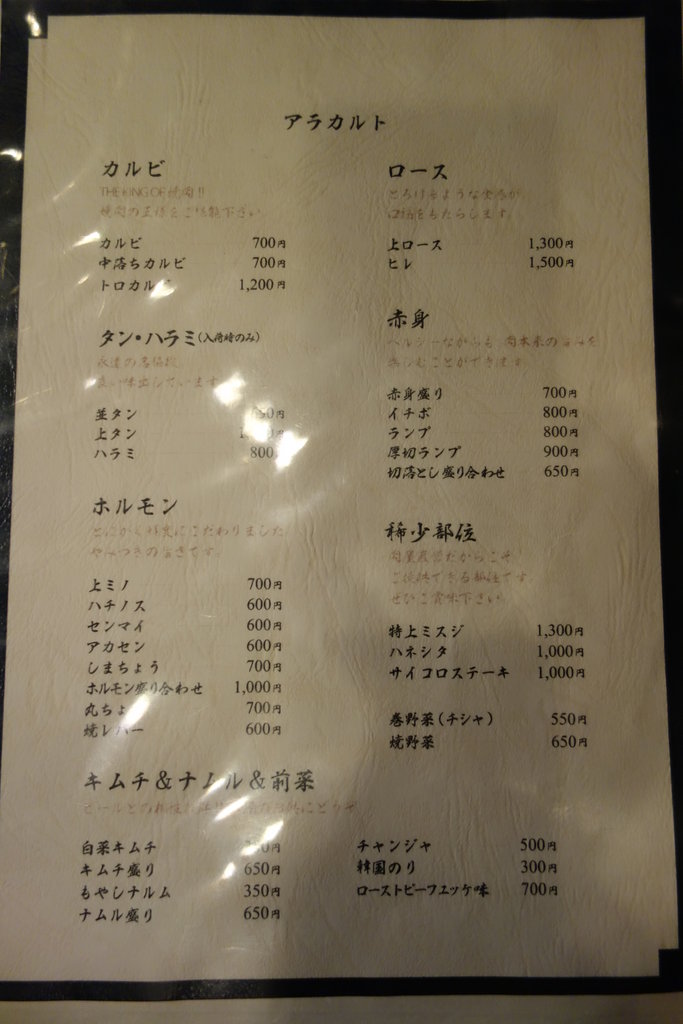 アラカルト
カルビ
THE KING OF 焼肉!!
焼肉の王様をご堪能下さい
カルビ 700円
中落ちカルビ 700円
トロカルビ 1,200円
タン・ハラミ(入荷時のみ)
永遠の名脇役
良い味出しています
並タン
上タン
ハラミ 800
ホルモン
とにかく鮮度にこだわりました
やみつきの旨さです。
上ミノ 700円
ハチノス 600円
センマイ 600円
アカセン 600円
しまちょう 700円
ホルモン盛り合わせ 1,000円
丸ちょ 700円
焼レバー 600円
ロース
とろけるような食感が
口福をもたらします。
上ロース 1,300円
ヒレ 1,500円
赤身
ヘルシーながらも、肉本来の旨みを
楽しむことができます
赤身盛り 700円
イチボ 800円
ランプ 800円
厚切ランプ 900円
切落とし盛り合わせ 650円
稀少部位
肉屋直営だからこそ
ご提供できる部位です。
ぜひご賞味下さい
特上ミスジ 1,300円
ハネシタ 1,000円
サイコロステーキ 1,000円
巻野菜(チシャ) 550円
焼野菜 650円
キムチ&ナムル&前菜
ビールとの相性
白菜キムチ
キムチ盛り 650円
もやしナムル 350円
ナムル盛り 650円
チャンジャ 500円
韓国のり 300円
ローストビーフユッケ味 700円